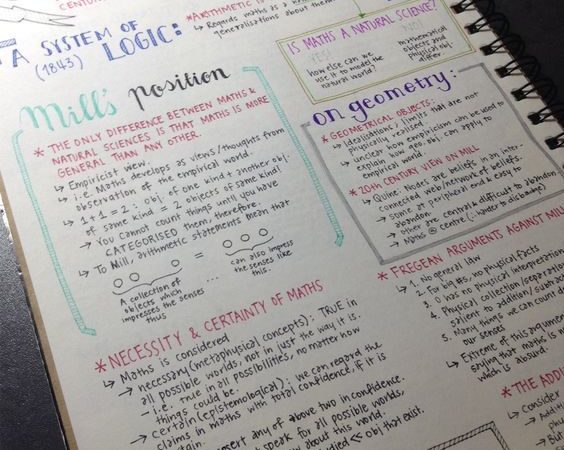 CENTUR
A SYSTEM OF
(1843) LOGIC:
*ARITHMETIC IS
↳ Regards maths as a
generalisations about them
IS MATHS A NATURAL SCIENCE?
YES!
how else can we
use it to model the
natural world?
NO!
mathematical
objects and
physical obj.
differ.
Mill's position
* THE ONLY DIFFERENCE BETWEEN MATHS &
NATURAL SCIENCES IS THAT MATHS IS MORE
GENERAL THAN ANY OTHER.
↳ Empiricist view.
↳ i.e. Maths develops as views/thoughts from
observation of the empirical world.
↳ 1+1=2: obj. of one kind + another obj.
of same kind = 2 objects of same kind!
↳ You cannot count things until you have
CATEGORISED them, therefore:
↳ To Mill, arithmetic statements mean that
=
A collection of
objects which
impresses the senses
thus
...
can also impress
the senses like
this.
on geometry:
* GEOMETRICAL OBJECTS:
↳ Idealisations; limits that are not
physically realised.
↳ unclear how empiricism can be used to
explain how geo. obj can apply to
empirical world.
* 20TH CENTURY VIEW ON MILL
↳ Quine: Nodes are beliefs in an inter-
connected web/network of beliefs.
↳ Some at peripheral end & easy to
abandon.
↳ Other are central & difficult to abandon
↳ Maths @ centre (∴ harder to dislodge)
* FREGEAN ARGUMENTS AGAINST MILL
↳ 1. No general law
↳ 2. For big #s, no physical facts
3. 0 has no physical interpretation
4. Physical collection/separation
salient to addition/subtra
5. Many things we can count do
our senses
↳ Extreme of this argumen
saying that maths is
which is absurd.
* NECESSITY & CERTAINTY OF MATHS
↳ Maths is considered
↳ necessary (metaphysical concepts): TRUE in
all possible worlds, not in just the way it is.
– i.e. true in all possibilities, no matter how
things could be.
↳ certain (epistemological): we can regard the
claims in maths with total confidence, if it is
certain.
assert any of above two in confidence.
speak for all possible worlds,
know about this world.
studied << obj that exist.
* THE ADDI
↳ Consider
↳ Additi
phys
↳ But